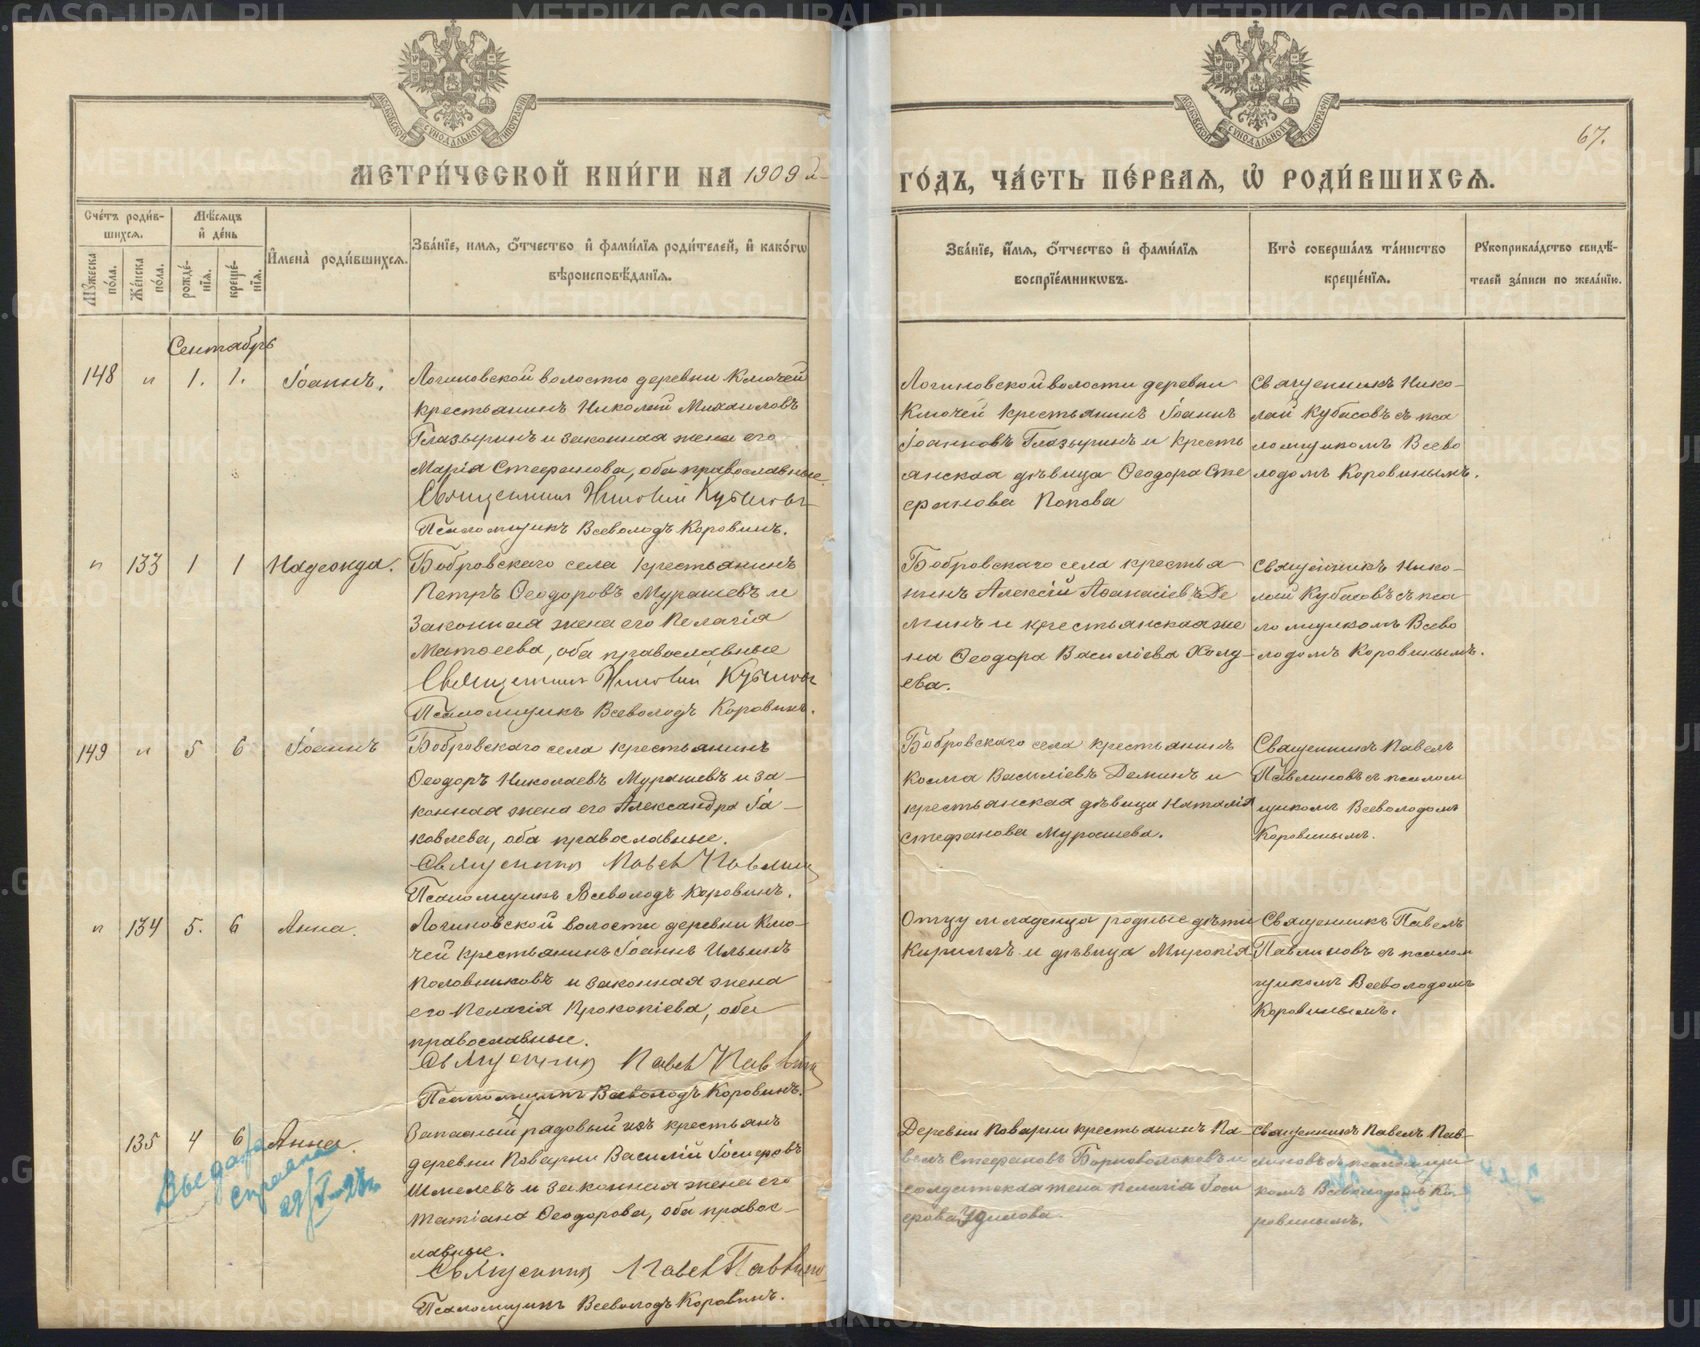 МЕТРИ́ЧЕСКОЙ КНИ́ГИ НА 1909 й
ГО́ДЪ, ЧА́СТЬ ПЕ́РВАЯ, Ѡ҆ РОДИ́ВШИХСЯ.
67.
МОСКОВСКОЙ СѴНОДАЛЬНОЙ ТИПОГРАФІИ
МОСКОВСКОЙ СѴНОДАЛЬНОЙ ТИПОГРАФІИ
Сче́тъ роди́в-
шихся.
Мѣ́сяцъ
и҆ де́нь
Мꙋ́жеска по́ла.
Же́нска по́ла.
рожде́-
нїя.
креще́-
нїя.
И҆мена̀ роди́вшихся.
Зва́нїе, имя, ѻ҆́тчество и҆ фами́лїя роди́телей, и҆ како́гѡ
вѣроисповѣ́данїя.
Зва́нїе, и҆́мя, ѻ҆́тчество и҆ фами́лїя
воспрїе́мникѡвъ.
Кто̀ соверша́лъ та́инство
креще́нїя.
Рꙋкоприкла́дство свидѣ́-
телей за́писи по жела́нїю.
Сентябрь
148 „ 1. 1. Іоаннъ.
Логиновской волости деревни Ключей
крестьянинъ Николай Михаиловъ
Глазыринъ и законная жена его
Марія Стефанова, оба православные.
Священникъ Николай Кубасовъ
Псаломщикъ Всеволодъ Коровинъ.
Логиновской волости деревни
Ключей крестьянинъ Іоаннъ
Іоанновъ Глазыринъ и кресть
янская дѣвица Ѳеодора Сте
фанова Попова
Священникъ Нико-
лай Кубасовъ съ пса
ломщикомъ Всево
лодомъ Коровинымъ.
„ 133 1 1 Надежда.
Бобровскаго села крестьянинъ
Петръ Ѳеодоровъ Мурашевъ и
законная жена его Пелагія
Матѳеева, оба православные
Священникъ Николай Кубасовъ
Псаломщикъ Всеволодъ Коровинъ.
Бобровскаго села крестья
нинъ Алексій Аѳанасіевъ Де
минъ и крестьянская же
на Ѳеодора Василіева
ева.
Священникъ Нико-
лай Кубасовъ съ пса
ломщикомъ Всево
лодомъ Коровинымъ.
149 „ 5 6 Іоаннъ
Бобровскаго села крестьянинъ
Ѳеодоръ Николаевъ Мурашевъ и за-
конная жена его Александра Іа-
ковлева, оба православные.
Священникъ Павелъ Павлиновъ
Псаломщикъ Всеволодъ Коровинъ.
Бобровскаго села крестьянинъ
Косма Василіевъ Деминъ и
крестьянская дѣвица Наталія
Стефанова Мурашева.
Священникъ Павелъ
Павлиновъ съ псалом
щикомъ Всеволодомъ
Коровинымъ.
„ 134 5. 6 Анна.
Логиновской волости деревни Клю-
чей крестьянинъ Іоаннъ Ильинъ
Половниковъ и законная жена
его Пелагія Прокопіева, оба
православные.
Священникъ Павелъ Павлиновъ
Псаломщикъ Всеволодъ Коровинъ.
Отцу младенца родные дѣти
Кириллъ и дѣвица Миропія
Священникъ Павелъ
Павлиновъ съ псалом
щикомъ Всеволодомъ
Коровинымъ.
135 4 6 Анна.
Запасный рядовый изъ крестьянъ
деревни Поварни Василій Іосифовъ
Шмелевъ и законная жена его
Татіана Ѳеодорова, оба правос-
лавные.
Священникъ Павелъ Павлиновъ
Псаломщикъ Всеволодъ Коровинъ.
Деревни Поварни крестьянинъ Па-
велъ Стефановъ Барноволоковъ и
солдатская жена Пелагія Іоси
фова
Священникъ Павелъ Пав-
линовъ съ псаломщи
комъ Всеволодомъ Ко-
ровинымъ.
Выдана
справка
METRIKI.GASO-URAL.RU